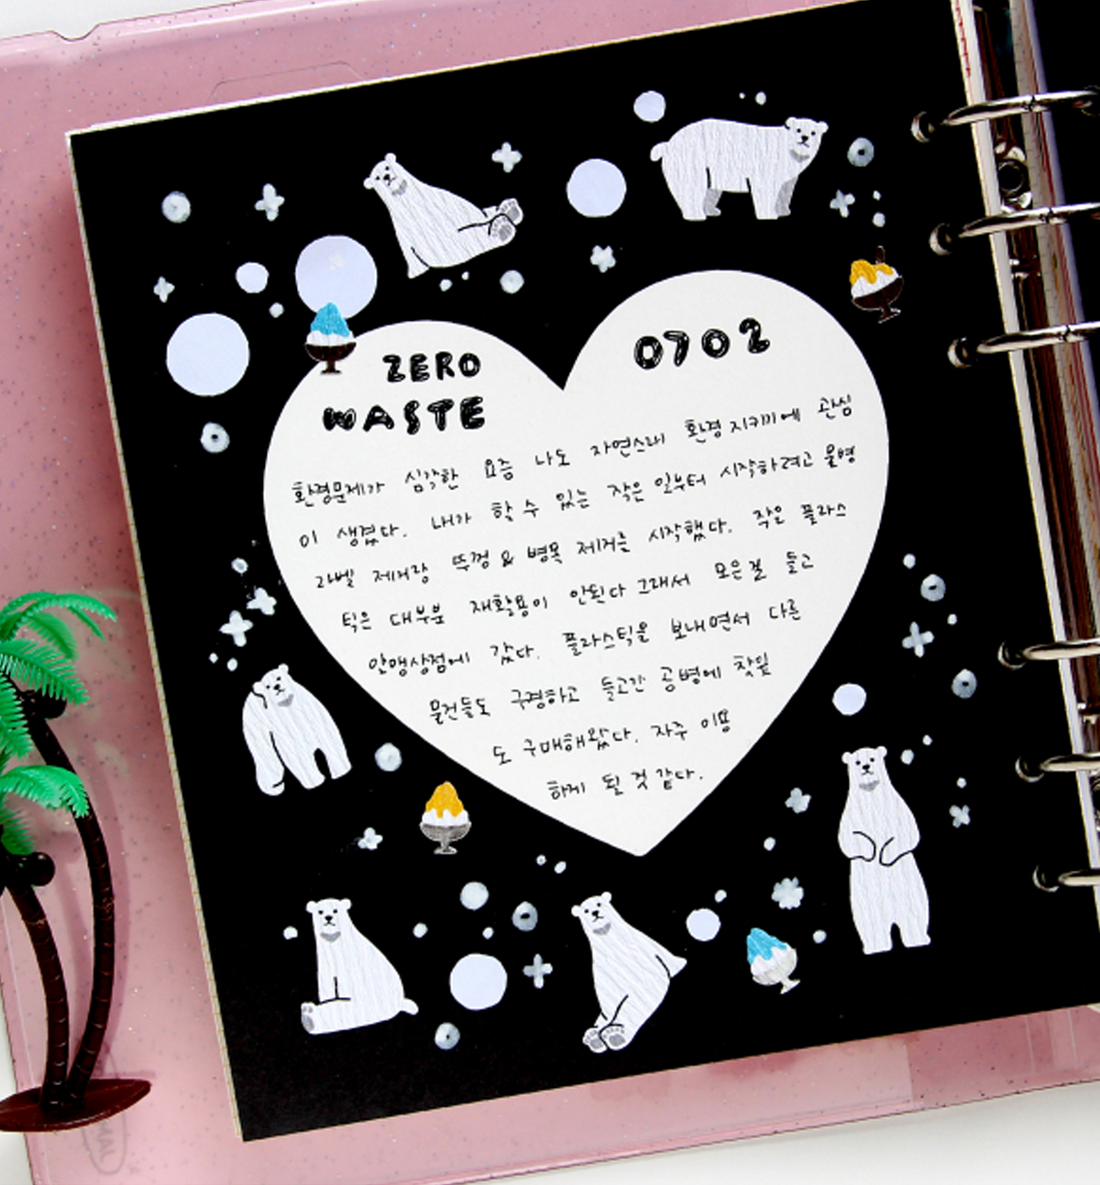 ZERO
WASTE
0702
환경문제가 심각한 요즘 나도 자연스레 환경 지키기에 관심
이 생겼다. 내가 할 수 있는 작은 일부터 시작하려고 물병
라벨 제거랑 뚜껑 & 병목 제거를 시작했다. 작은 플라스
틱은 대부분 재활용이 안된다 그래서 모은걸 들고
알맹상점에 갔다. 플라스틱을 보내면서 다른
물건들도 구경하고 들고간 공병에 찻잎
도 구매해왔다. 자주 이용
하게 될 것 같다.